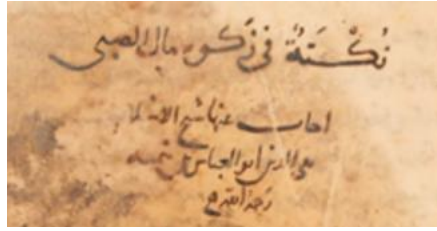 نُكْتَةٌ فى زَكوه مال الصبى
اجاب عنها شيخ الاسلام
تقى الدين ابو العباس بن تيميه
رحمه الله